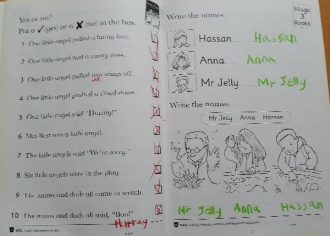 Yes or no?
Put a ✓ (yes) or a ✗ (no) in the box.
1 One little angel pulled a funny face.
2 One little angel had a runny nose.
3 One little angel pulled
4 One little angel pulled a cloud down.
5 One little angel said
6 was a little angel.
7 The little angels said "We're sorry."
8 Six little angels were in the play.
9 The mums and dads all came to watch.
10 The mums and dads all said, "Boo!"
Hurray
Write the names.
Stage
3
Books
Hassan Hassan
Anna Anna
Mr Jelly Mr Jelly
Write the names.
Mr Jelly Anna Hassan
Mr Jelly Anna Hassan